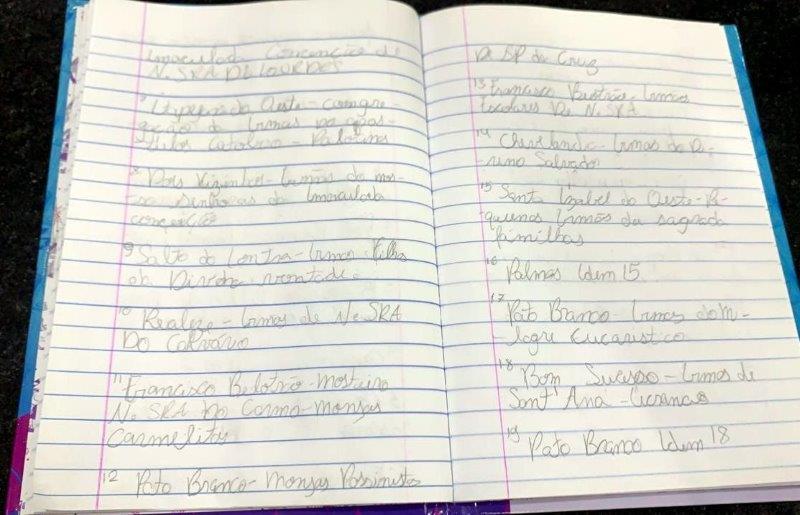 Imaculada Conceição de
N. SRA DE LOURDES
Itapejara do Oeste - congre-
gação de Irmas no apos-
tolos Catolico - Palotinas
8 Dois Vizinhos - Irmãs da nos-
sa senhora da Imaculada
conceição
9 Salto do Lontra - Irmas Filhas
da Divina vontade
10 Realeza - Irmas de N. SRA
Do Calvário
11 Francisco Beltrão - Mosteiro
N. SRA do Carmo - Monjas
Carmelitas
12 Pato Branco - Monjas Passionistas
De SP da Cruz
13 Francisco Beltrão - Irmas
Escolares De N. SRA
14 Clevelandia - Irmas do Di-
vino Salvador
15 Santa Izabel do Oeste - Pe-
quenas Irmãs da sagrada
familias
16 Palmas Idem 15
17 Pato Branco - Irmas do Mi-
lagre Eucaristico
18 Bom Sucesso - Irmas de
Sant' Ana -
19 Pato Branco Idem 18